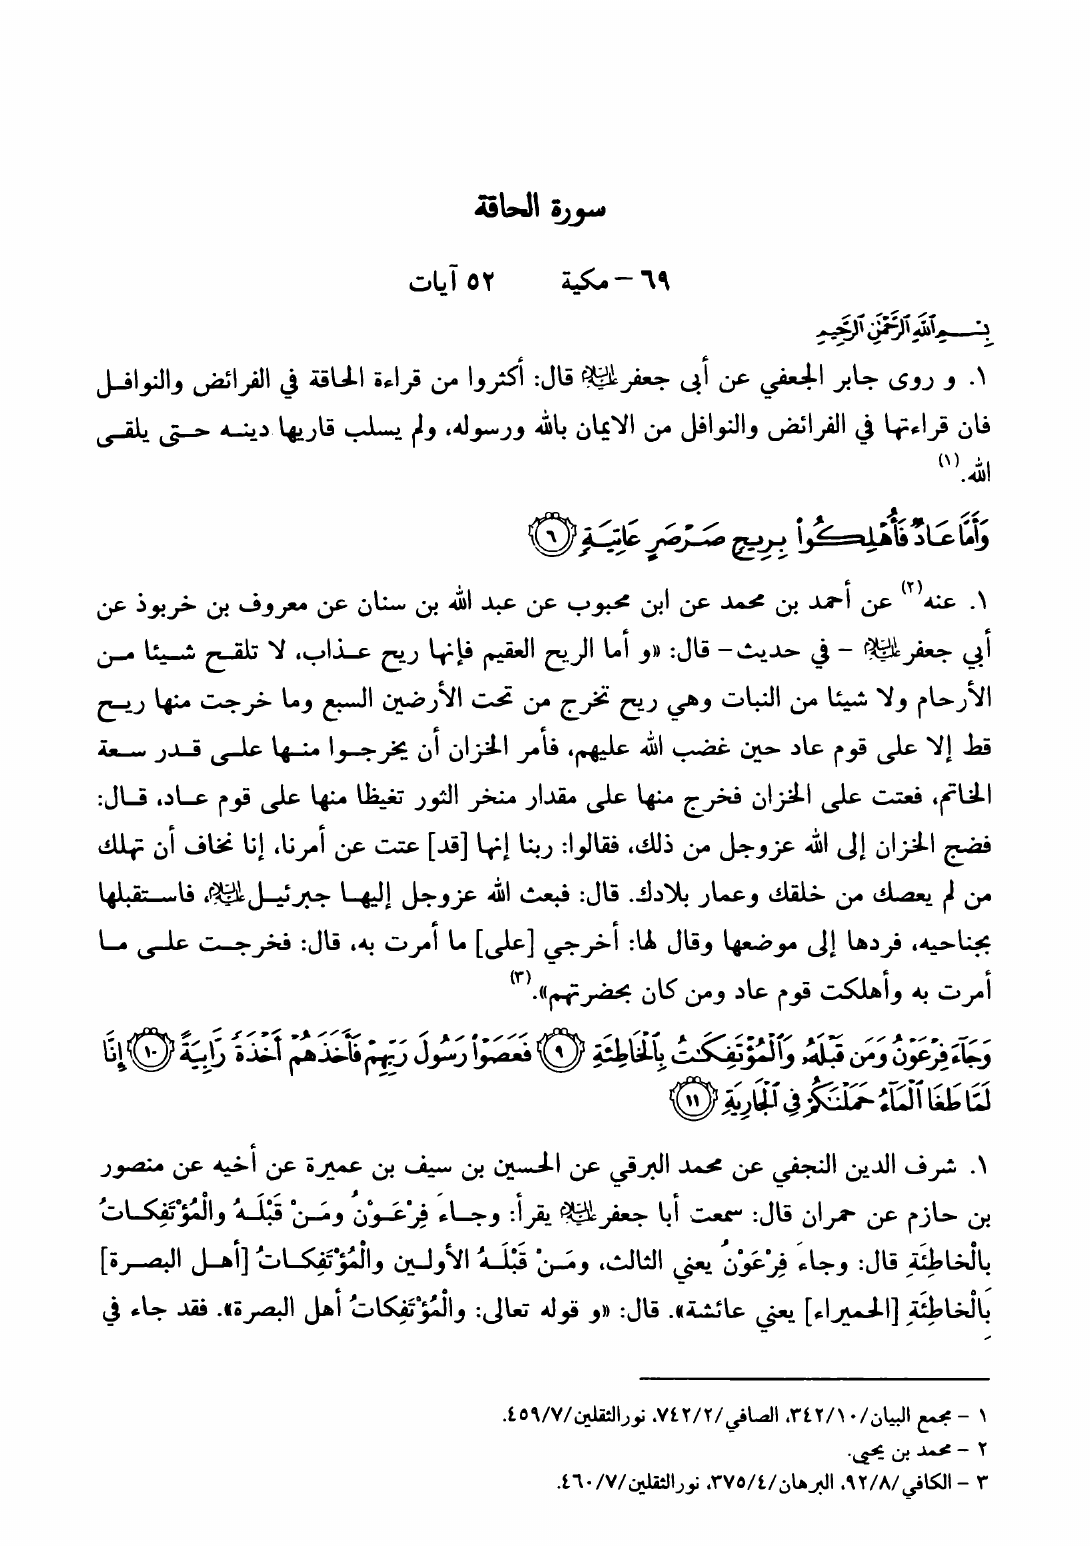 سورة الحاقة
٦٩ – مكية ٥٢ آيات
بِسْمِ اللَّهِ الرَّحْمَٰنِ الرَّحِيمِ
١. و روى جابر الجعفي عن أبى جعفر عليه السلام قال: أكثروا من قراءة الحاقة في الفرائض والنوافل
فان قراءتها في الفرائض والنوافل من الايمان بالله ورسوله، ولم يسلب قاريها دينه حتى يلقى
الله.(١)
وَأَمَّا عَادٌ فَأُهْلِكُوا۟ بِرِيحٍ صَرْصَرٍ عَاتِيَةٍ ﴿٦﴾
١. عنه(٢) عن أحمد بن محمد عن ابن محبوب عن عبد الله بن سنان عن معروف بن خربوذ عن
أبي جعفر عليه السلام – في حديث– قال: «و أما الريح العقيم فإنها ريح عذاب، لا تلقح شيئا من
الأرحام ولا شيئا من النبات وهي ريح تخرج من تحت الأرضين السبع وما خرجت منها ريح
قط إلا على قوم عاد حين غضب الله عليهم، فأمر الخزان أن يخرجوا منها على قدر سعة
الخاتم، فعتت على الخزان فخرج منها على مقدار منخر الثور تغيظا منها على قوم عاد، قال:
فضج الخزان إلى الله عزوجل من ذلك، فقالوا: ربنا إنها [قد] عتت عن أمرنا، إنا نخاف أن تهلك
من لم يعصك من خلقك وعمار بلادك. قال: فبعث الله عزوجل إليها جبرئيل عليه السلام، فاستقبلها
بجناحيه، فردها إلى موضعها وقال لها: أخرجي [على] ما أمرت به، قال: فخرجت على ما
أمرت به وأهلكت قوم عاد ومن كان بحضرتهم».(٣)
وَجَآءَ فِرْعَوْنُ وَمَن قَبْلَهُۥ وَٱلْمُؤْتَفِكَٰتُ بِٱلْخَاطِئَةِ ﴿٩﴾ فَعَصَوْا۟ رَسُولَ رَبِّهِمْ فَأَخَذَهُمْ أَخْذَةً رَّابِيَةً ﴿١٠﴾ إِنَّا
لَمَّا طَغَا ٱلْمَآءُ حَمَلْنَٰكُمْ فِى ٱلْجَارِيَةِ ﴿١١﴾
١. شرف الدين النجفي عن محمد البرقي عن الحسين بن سيف بن عميرة عن أخيه عن منصور
بن حازم عن حمران قال: سمعت أبا جعفر عليه السلام يقرأ: وجاءَ فِرْعَوْنُ ومَنْ قَبْلَهُ والْمُؤْتَفِكاتُ
بِالْخاطِئَةِ قال: وجاءَ فِرْعَوْنُ يعني الثالث، ومَنْ قَبْلَهُ الأولين والْمُؤْتَفِكاتُ [أهل البصرة]
بِالْخاطِئَةِ [الحميراء] يعني عائشة». قال: «و قوله تعالى: والْمُؤْتَفِكاتُ أهل البصرة». فقد جاء في
١ – مجمع البيان/٣٤٢/١٠، الصافي/٧٤٢/٢، نورالثقلين/٤٥٩/٧.
٢ – محمد بن يحيى.
٣ – الكافي/٩٢/٨، البرهان/٣٧٥/٤، نورالثقلين/٤٦٠/٧.